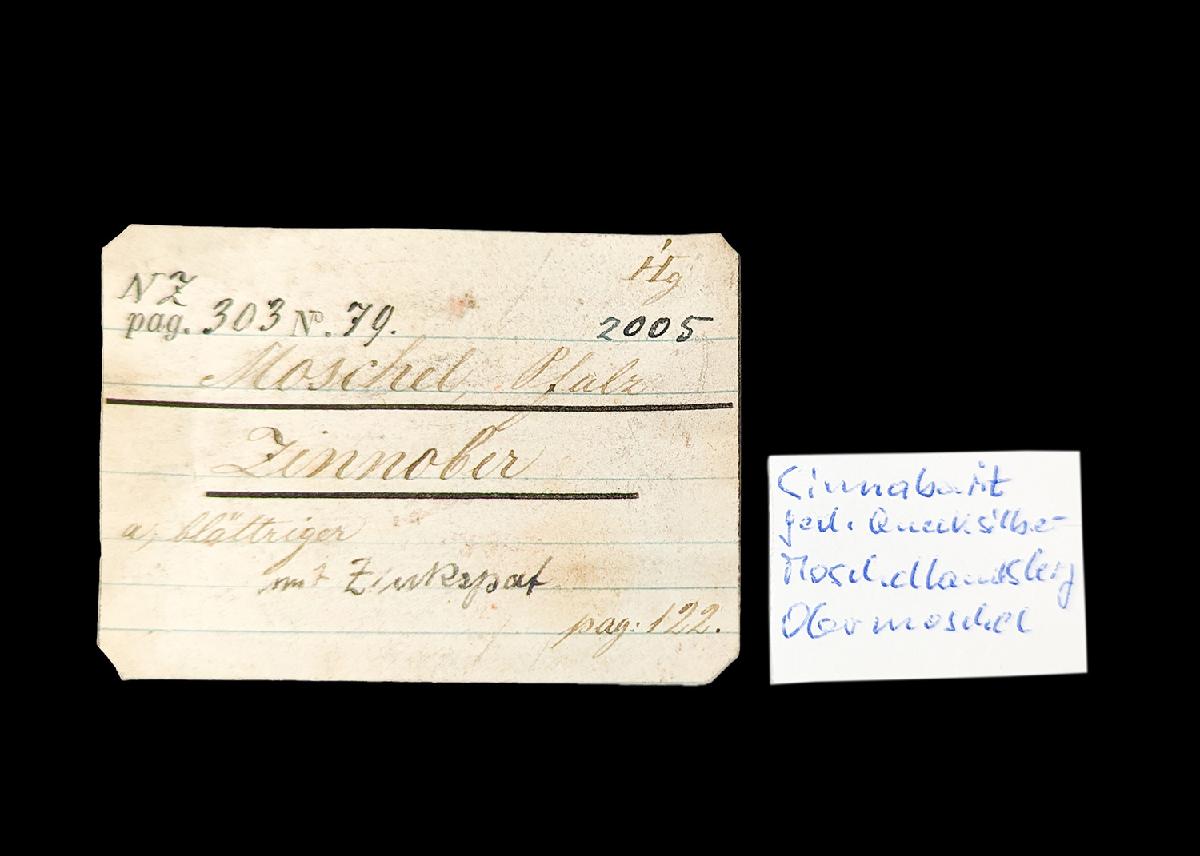 Hg
NZ
pag. 303 No. 79.
2005
Moschel, Pfalz
Zinnober
a, blättriger
mit Zinkspat
pag. 122.
Cinnabarit
ged. Quecksilber
Moschellandsberg
Obermoschel